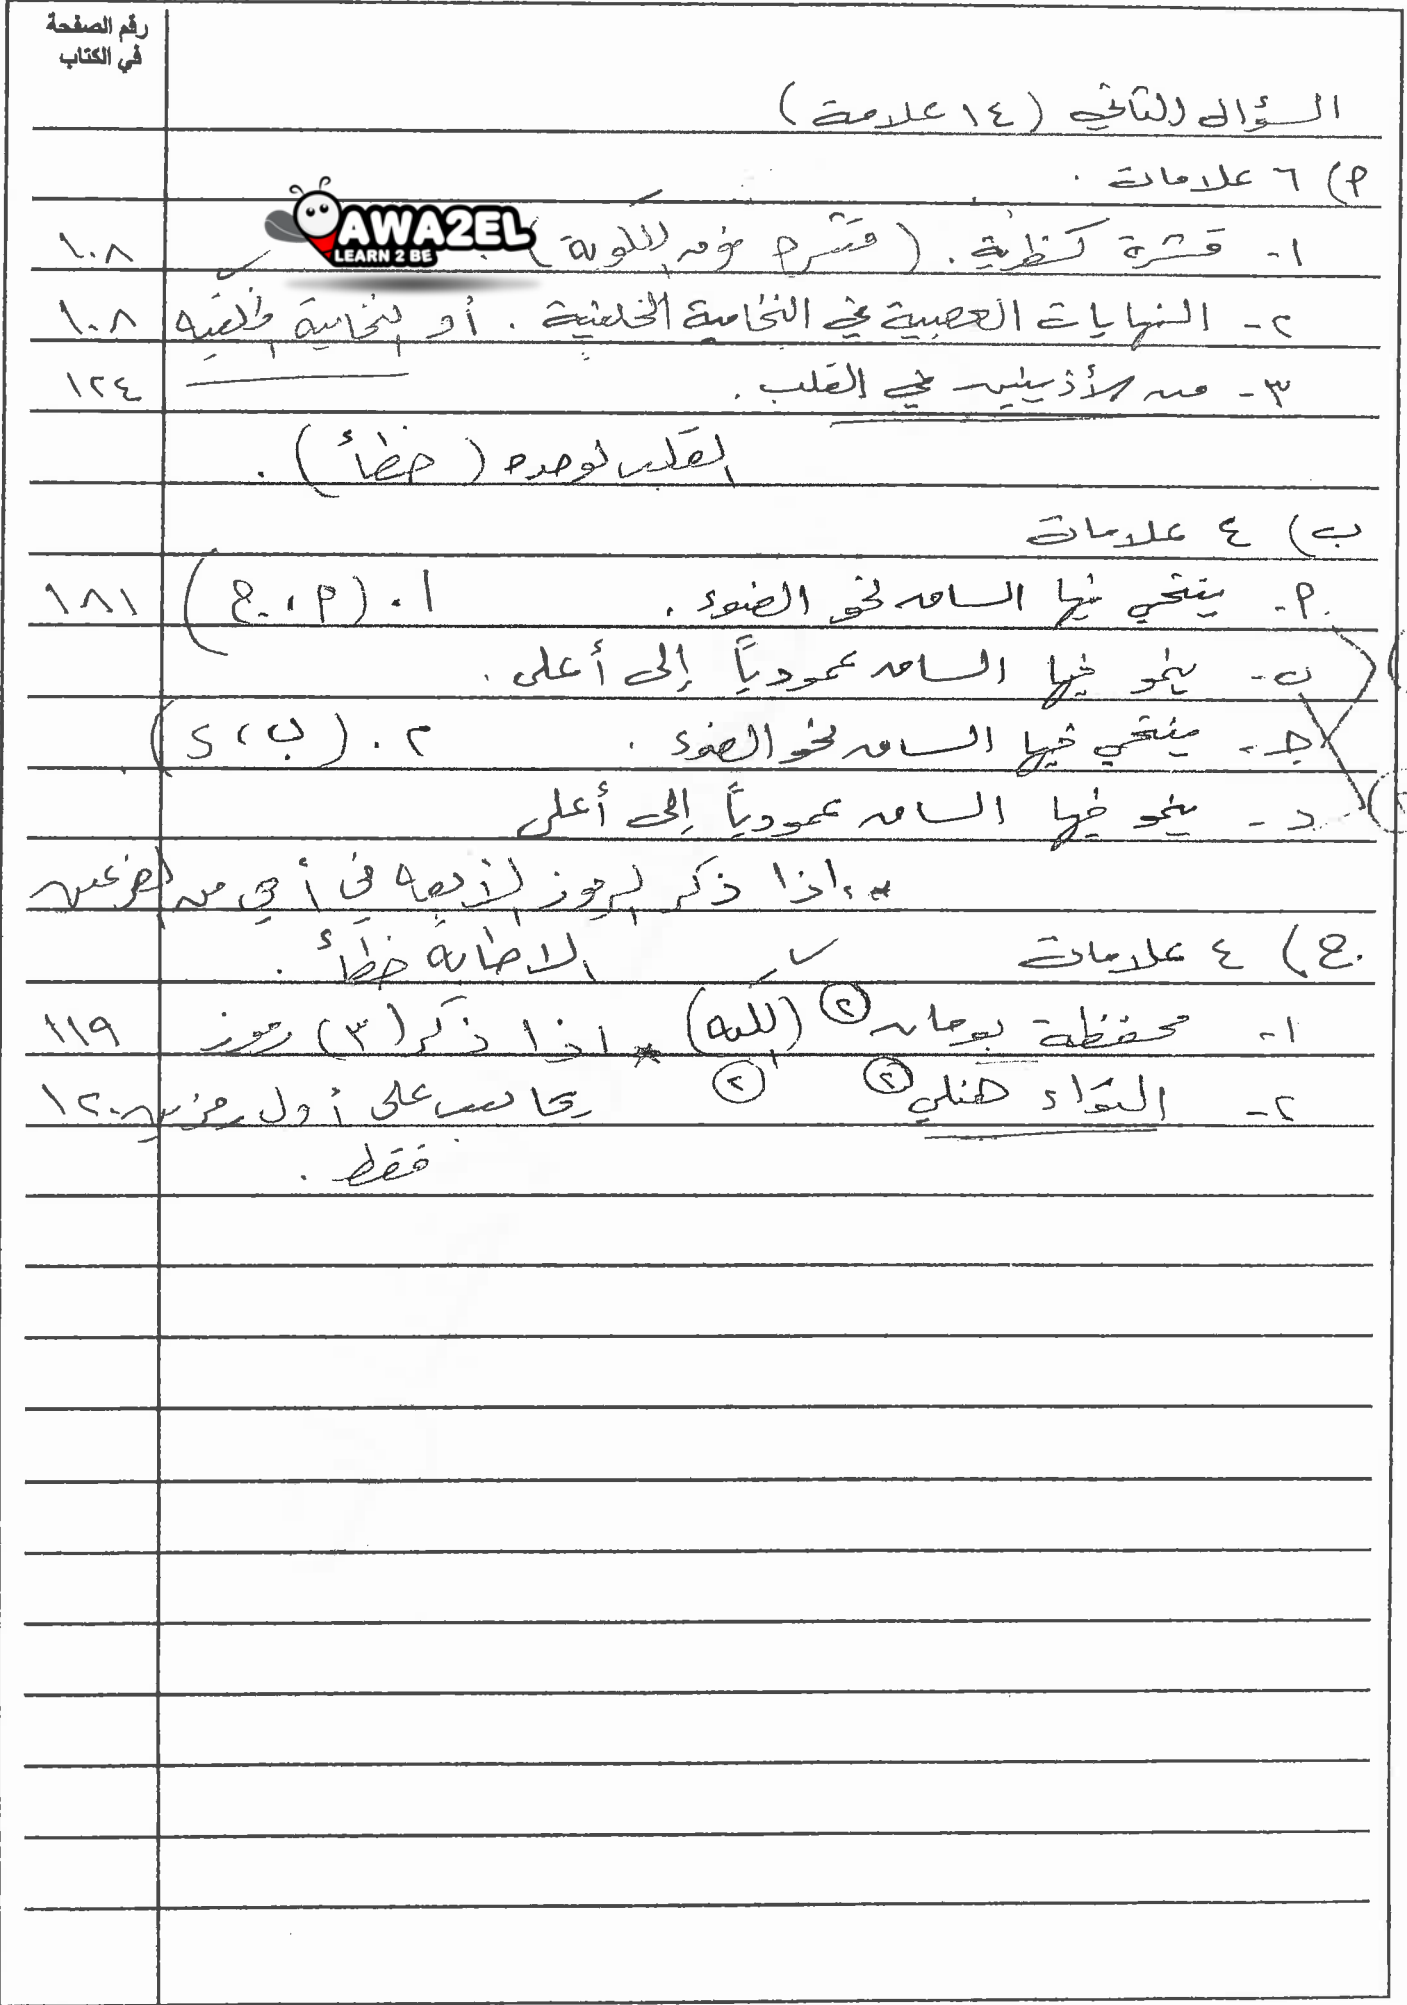 رقم الصفحة
في الكتاب
السؤال الثاني (١٤ علامة)
أ) ٦ علامات .
AWA2EL
LEARN 2 BE
١- قشرة كظرية . (قشرة فوق الكلوية) ١٠٨
٢- النهايات العصبية في النخامية الخلفية . أو نخامية خلفية ١٠٨
٣- من الأذينين في القلب . ١٢٤
القلب لوحده (خطأ) .
ب) ٤ علامات
أ- ينتحي فيها الساق نحو الضوء . ١. (أ ، ج) ١٨١
ب- ينمو فيها الساق عمودياً إلى أعلى .
جـ- ينتحي فيها الساق نحو الضوء . ٢. (ب ، د)
د- ينمو فيها الساق عمودياً إلى أعلى
* اذا ذكر الرموز الأربعة في أي من الفرعين
الاجابة خطأ .
ج) ٤ علامات
١- محفظة بومان ٢ (الكلية) * اذا ذكر (٣) رموز ١١٩
٢- التواء هنلي ٢ ٢ يحاسب على أول رمزين ١٢٠
فقط .